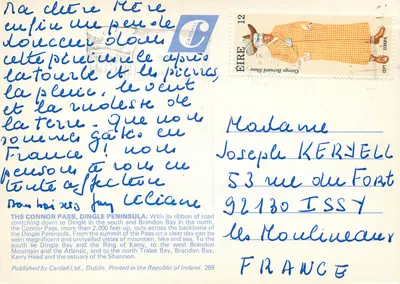 Ma chère Mère
enfin un peu de
douceur dans
cette péninsule après
la tourbe et les pierres,
la pluie, le vent
et la rudesse de
la terre. Que nous
sommes gâtés en
France ! nous
pensons à vous en
toute affection
Bons baisers Guy Eliane
THE CONNOR PASS, DINGLE PENINSULA: With its ribbon of road
stretching down to Dingle in the south and Brandon Bay in the north,
the Connor Pass, more than 2,000 feet up, cuts across the backbone of
the Dingle Peninsula. From the summit of the Pass on a clear day can be
seen magnificent and unrivalled vistas of mountain, lake and sea. To the
south lie Dingle Bay and the Ring of Kerry, to the west Brandon
Mountain and the Atlantic, and to the north Tralee Bay, Brandon Bay,
Kerry Head and the estuary of the Shannon.
Published by Cardall Ltd., Dublin. Printed in the Republic of Ireland. 269
C
ÉIRE 12
George Bernard Shaw
EUROPA
CEPT
Madame
Joseph KERVELL
53 rue du FORT
92130 ISSY
les Moulineaux
FRANCE